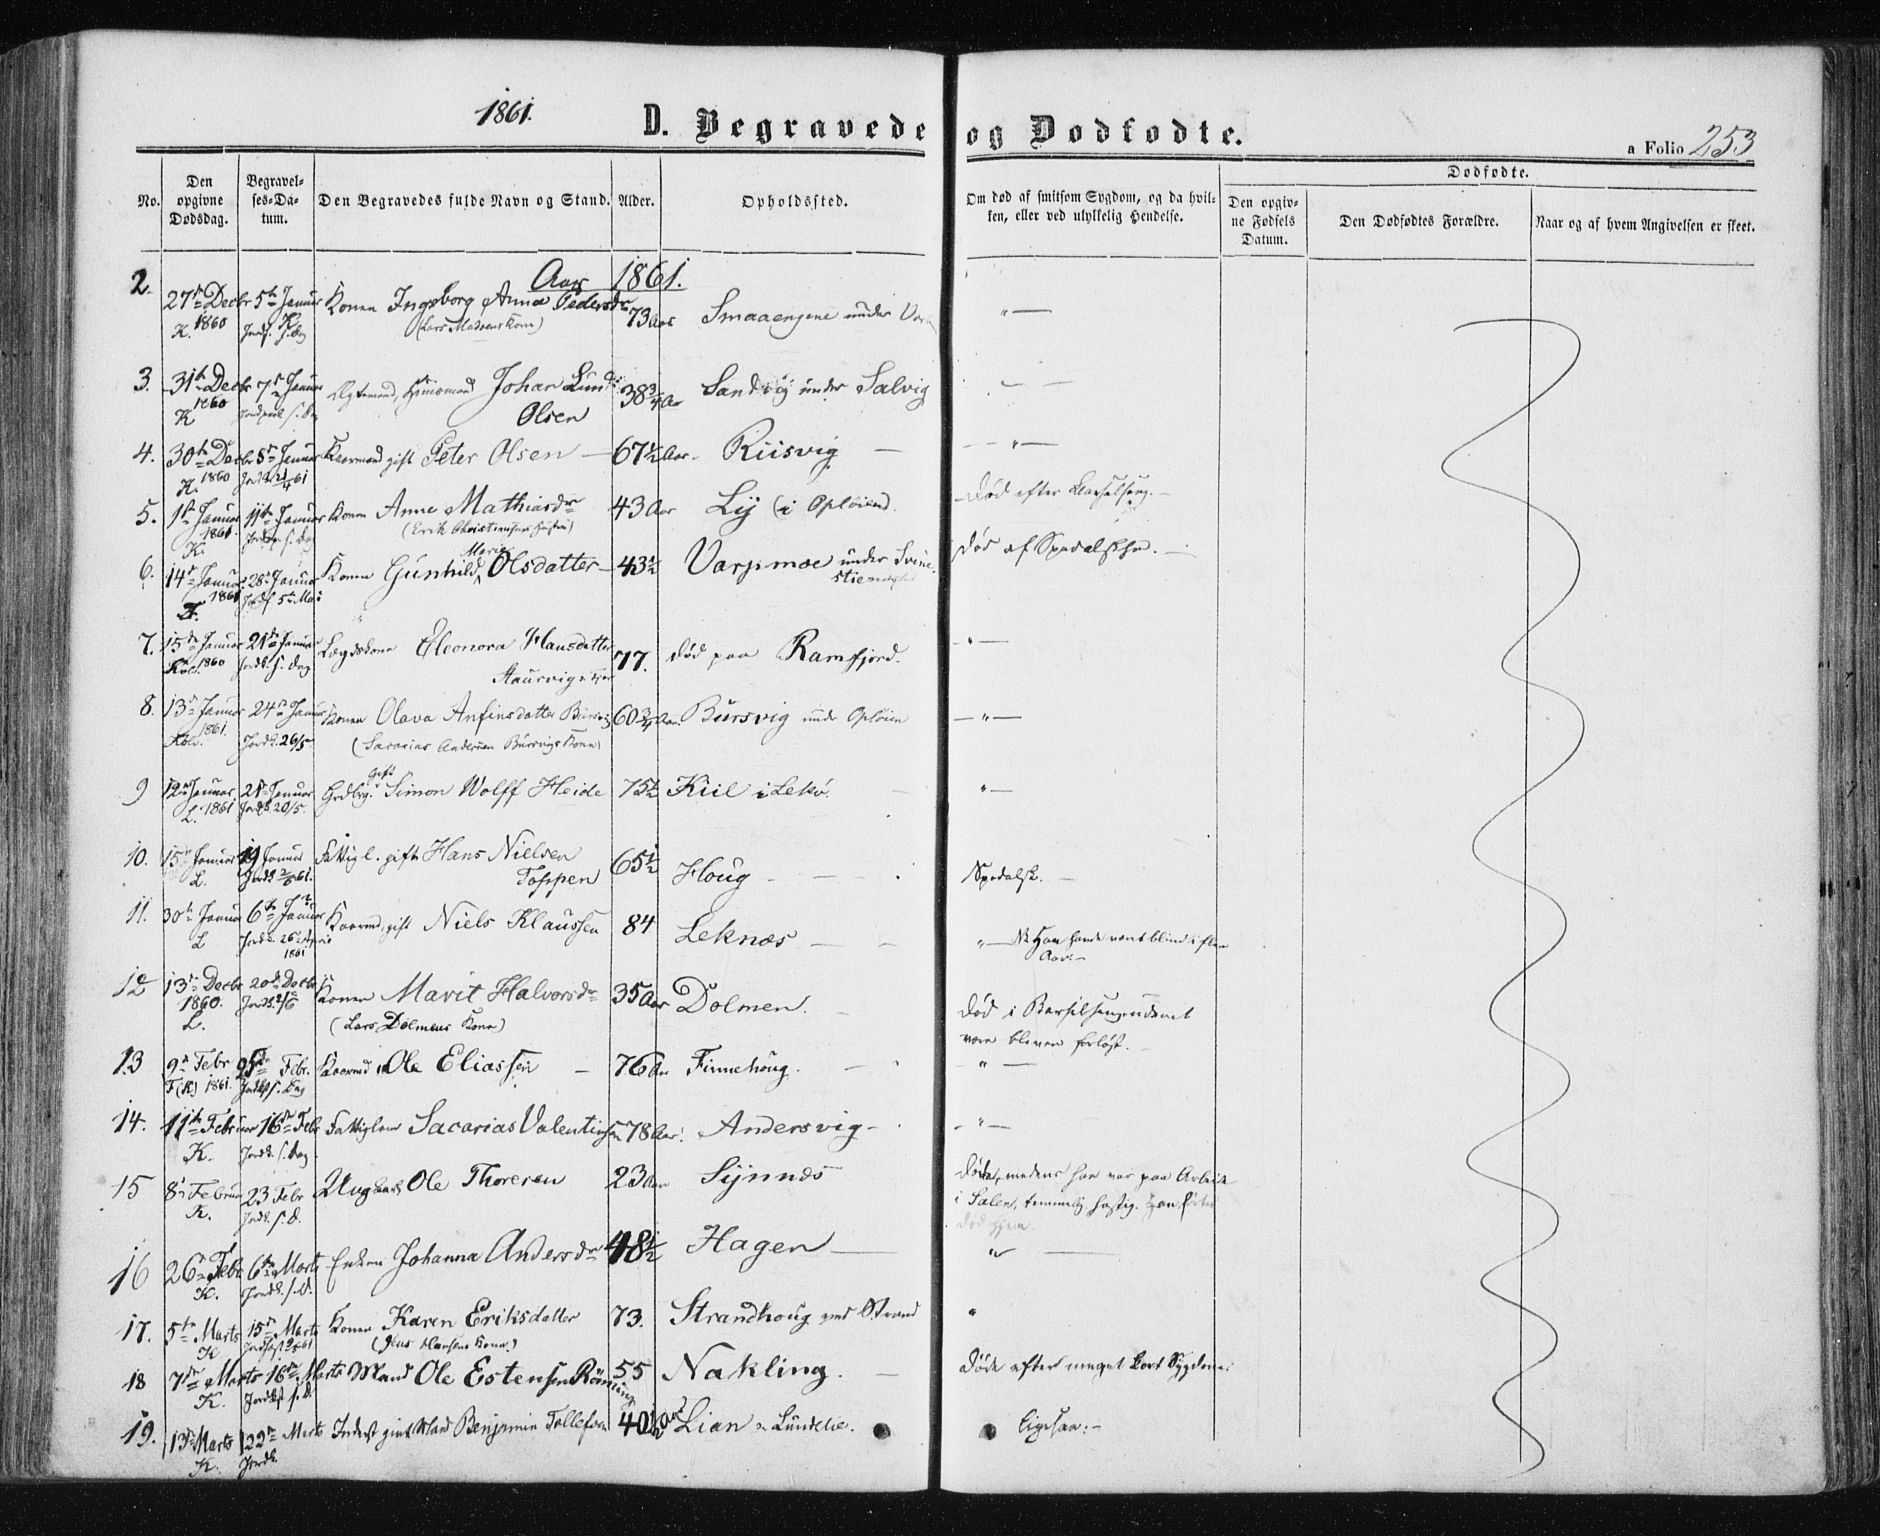 1861.
D. Begravede og Dødfødte.
a Folio 253
No.
Den opgivne Dødsdag.
Begravelses-Datum.
Den Begravedes fulde Navn og Stand.
Alder.
Opholdssted.
Om død af smitsom Sygdom, og da hvilken, eller ved ulykkelig Hendelse.
Dødfødte.
Den opgivne Fødsels Datum.
Den Dødfødtes Forældre.
Naar og af hvem Angivelsen er skeet.
Aar 1861.
2. 27de Decbr 1860 K. 5te Januar Konen Ingeborg Anna Pedersdr (Lars Madsens Kone) 73 Aar Smaaengene under
3. 31te Decbr 1860 K 7de Januar Jordpaak. s. Dag Ægtemand, Huusmand Johan Lund Olsen 38 3/4 Aar Sandvig under Salvig
4. 30te Decbr 1860 K. 8de Januar Kaarmand gift Peter Olsen — 67 1/2 Aar. Riisvig —
5. 1ste Januar 1861. K. 11te Januar s. Dag Konen Anne Mathiasdr (Erik Christiansens Hustru) 43 Aar Lÿ (i Opløien) Død efter Barselseng. —
6. 14de Januar 1861 28de Januar Jordf. 5te Mai Konen Gunhild Marie Olsdatter — 43 1/2 Varpmoe under Svinestien Død af Spedalskhed. —
7. 15de Januar 1860 Kolv. 21de Januar Jordk. s. Dag Lægdskone Eleonora Hansdatter 77. død paa Ramfjord.
8. 13de Januar 1861. Kolv. 24de Januar Jordk. 26/5. Konen Olava Anfinsdatter Bürsvig (Sacarias Andersen Bürsvigs Kone) 60 3/4 Aar. Bürsvig under Opløien — " —
9 12te Januar L. 1861 21de Januar Jordk 20/5. Grdbrg. Gift Simon Wolff Heide 75 1/2 Kiil i Lekø. " —
10. 15de Januar L. 19 Januar Fattigl. gift Hans Nielsen Toppen 65 1/2 Houg Spedalsk. —
11. 30te Januar L 6te Jordk. 26de April 1861 Kaarmd, gift Niels Klaussen 84 Leknæs — " — NB Han havde været blind i flere Aar. —
12 13de Decbr 1860. L. 20de Decbr Konen Marit Halvorsdr (Lars Dolmens Kone) 35 Aar Dolmen. Død i Barselseng uden at være bleven forløst. —
13 9de Febr F (K) 1861. Febr. Jordk s. Dag Kaarmd Ole Eliassen — 76 Aar Finnehoug. — " —
14. 11te Februar K. 16de Febr Jordk. s. Dag Fattiglem Sacarias Valentinsen 78 Aar. Andersvig — " —
15 8de Februar K. 23 Febr Jordk. s. D. Ungkarl Ole Thoresen 23 Aar Sÿnnæs Døde, medens han var paa Arbeide i Salen, temmelig hastig. Han førtes død hjem.
16 26de Febr. K. 6te Marts Jordk. s. D. Enken Johanna Andersdr 48 1/2 Hagen — " —
17. 5te Marts K 15de Marts Konen Karen Eriksdatter (Jens Hansens Kone) 73. Strandhoug ved Strand "
18 7de Marts K. 16de Marts Jordkst s. D. Mand Ole Estensen Rønning 55 Nakling. — Døde efter meget kort Sygdom.
19. 13de Marts K. 22de Marts Jordk. Inderst gift Mand Benjamin Tollefsen 40 1/2 Aar Lian u. Ligesaa. —